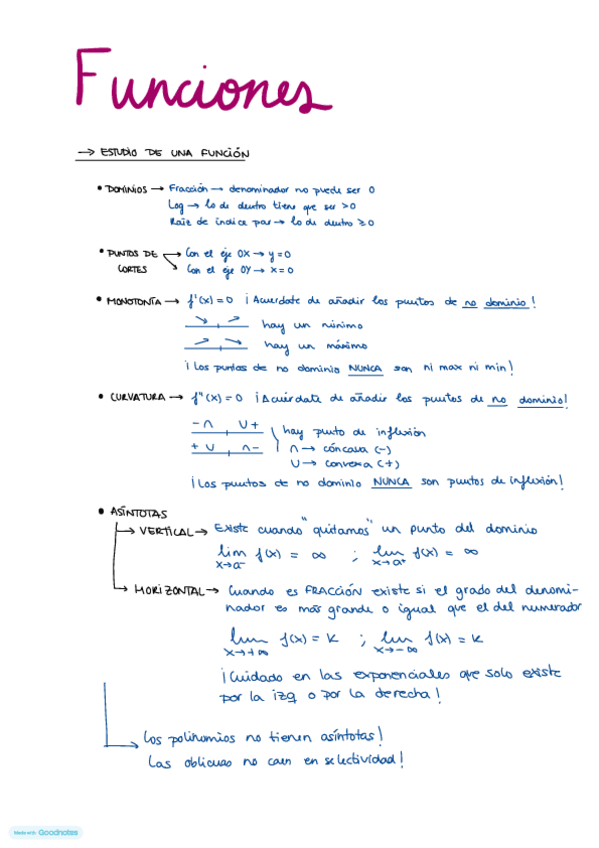 Funciones
→ ESTUDIO DE UNA FUNCIÓN
• DOMINIOS → Fracción → denominador no puede ser 0
Log → lo de dentro tiene que ser >0
Raíz de índice par → lo de dentro ≥0
• PUNTOS DE CORTES
Con el eje OX → y=0
Con el eje OY → x=0
• MONOTONÍA → f'(x)=0 ¡Acuerdate de añadir los puntos de no dominio!
hay un mínimo
hay un máximo
¡Los puntos de no dominio NUNCA son ni max ni min!
• CURVATURA → f''(x)=0 ¡Acuérdate de añadir los puntos de no dominio!
- ∩ ∪ +
hay punto de inflexión
+ ∪ ∩ -
∩ → cóncava (-)
∪ → convexa (+)
¡Los puntos de no dominio NUNCA son puntos de inflexión!
• ASÍNTOTAS
→ VERTICAL → Existe cuando "quitamos" un punto del dominio
lim x→a⁻ f(x) = ∞ ; lim x→a⁺ f(x) = ∞
→ HORIZONTAL → Cuando es FRACCIÓN existe si el grado del denomi-
nador es más grande o igual que el del numerador
lim x→+∞ f(x) = K ; lim x→-∞ f(x) = K
¡Cuidado en las exponenciales que solo existe
por la izq o por la derecha!
Los polinomios no tienen asíntotas!
Las oblicuas no caen en selectividad!
Made with Goodnotes